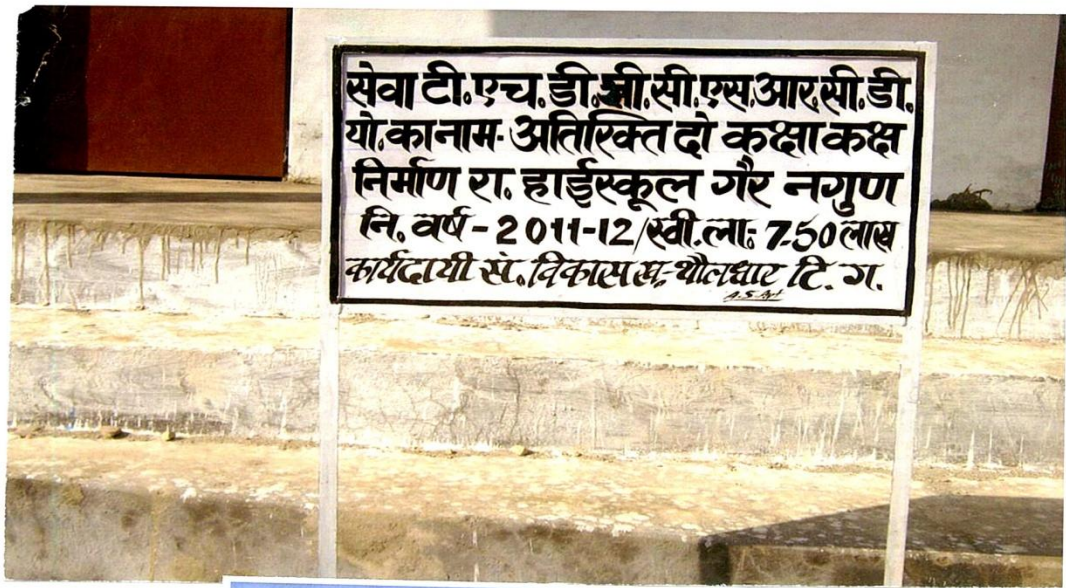 सेवा टी.एच.डी.सी.सी.एस.आर.सी.डी.
यो.का नाम- अतिरिक्त दो कक्षा कक्ष
निर्माण रा. हाईस्कूल गैर नगुण
नि. वर्ष - 2011-12/स्वी.ला: 7.50 लाख
कार्यदायी सं. विकास ख.-थौलधार टि. ग.